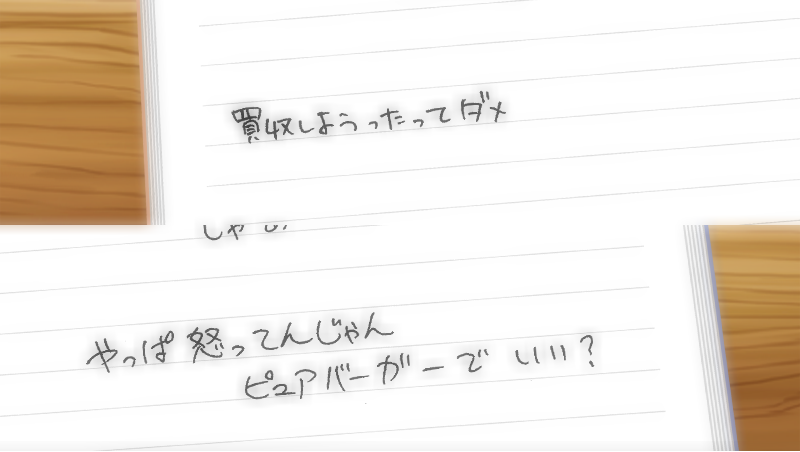 買収しようったってダメ
やっぱ怒ってんじゃん
ピュアバーガーでいい?